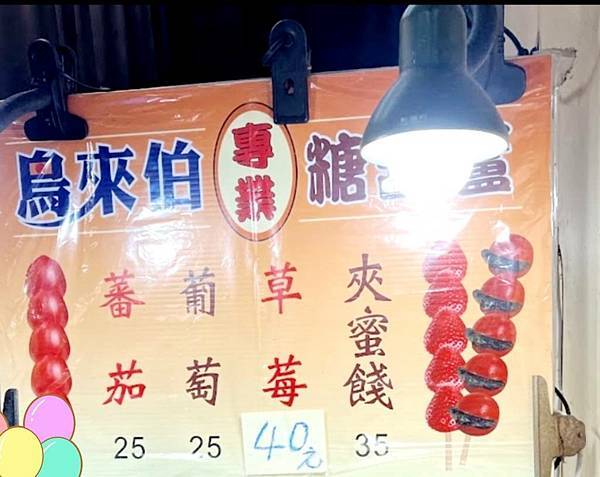 烏來伯 專業 糖葫蘆
蕃茄 25
葡萄 25
草莓 40元
夾蜜餞 35